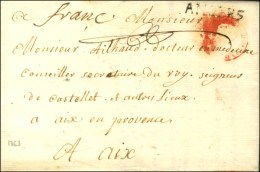 ce franc A Monsieur
ANGERS
Monsieur Ailhaud docteur en medecine
Conseiller secretaire du roy, seigneur
de Castellet et autres Lieux
a aix en provence
A aix
1763